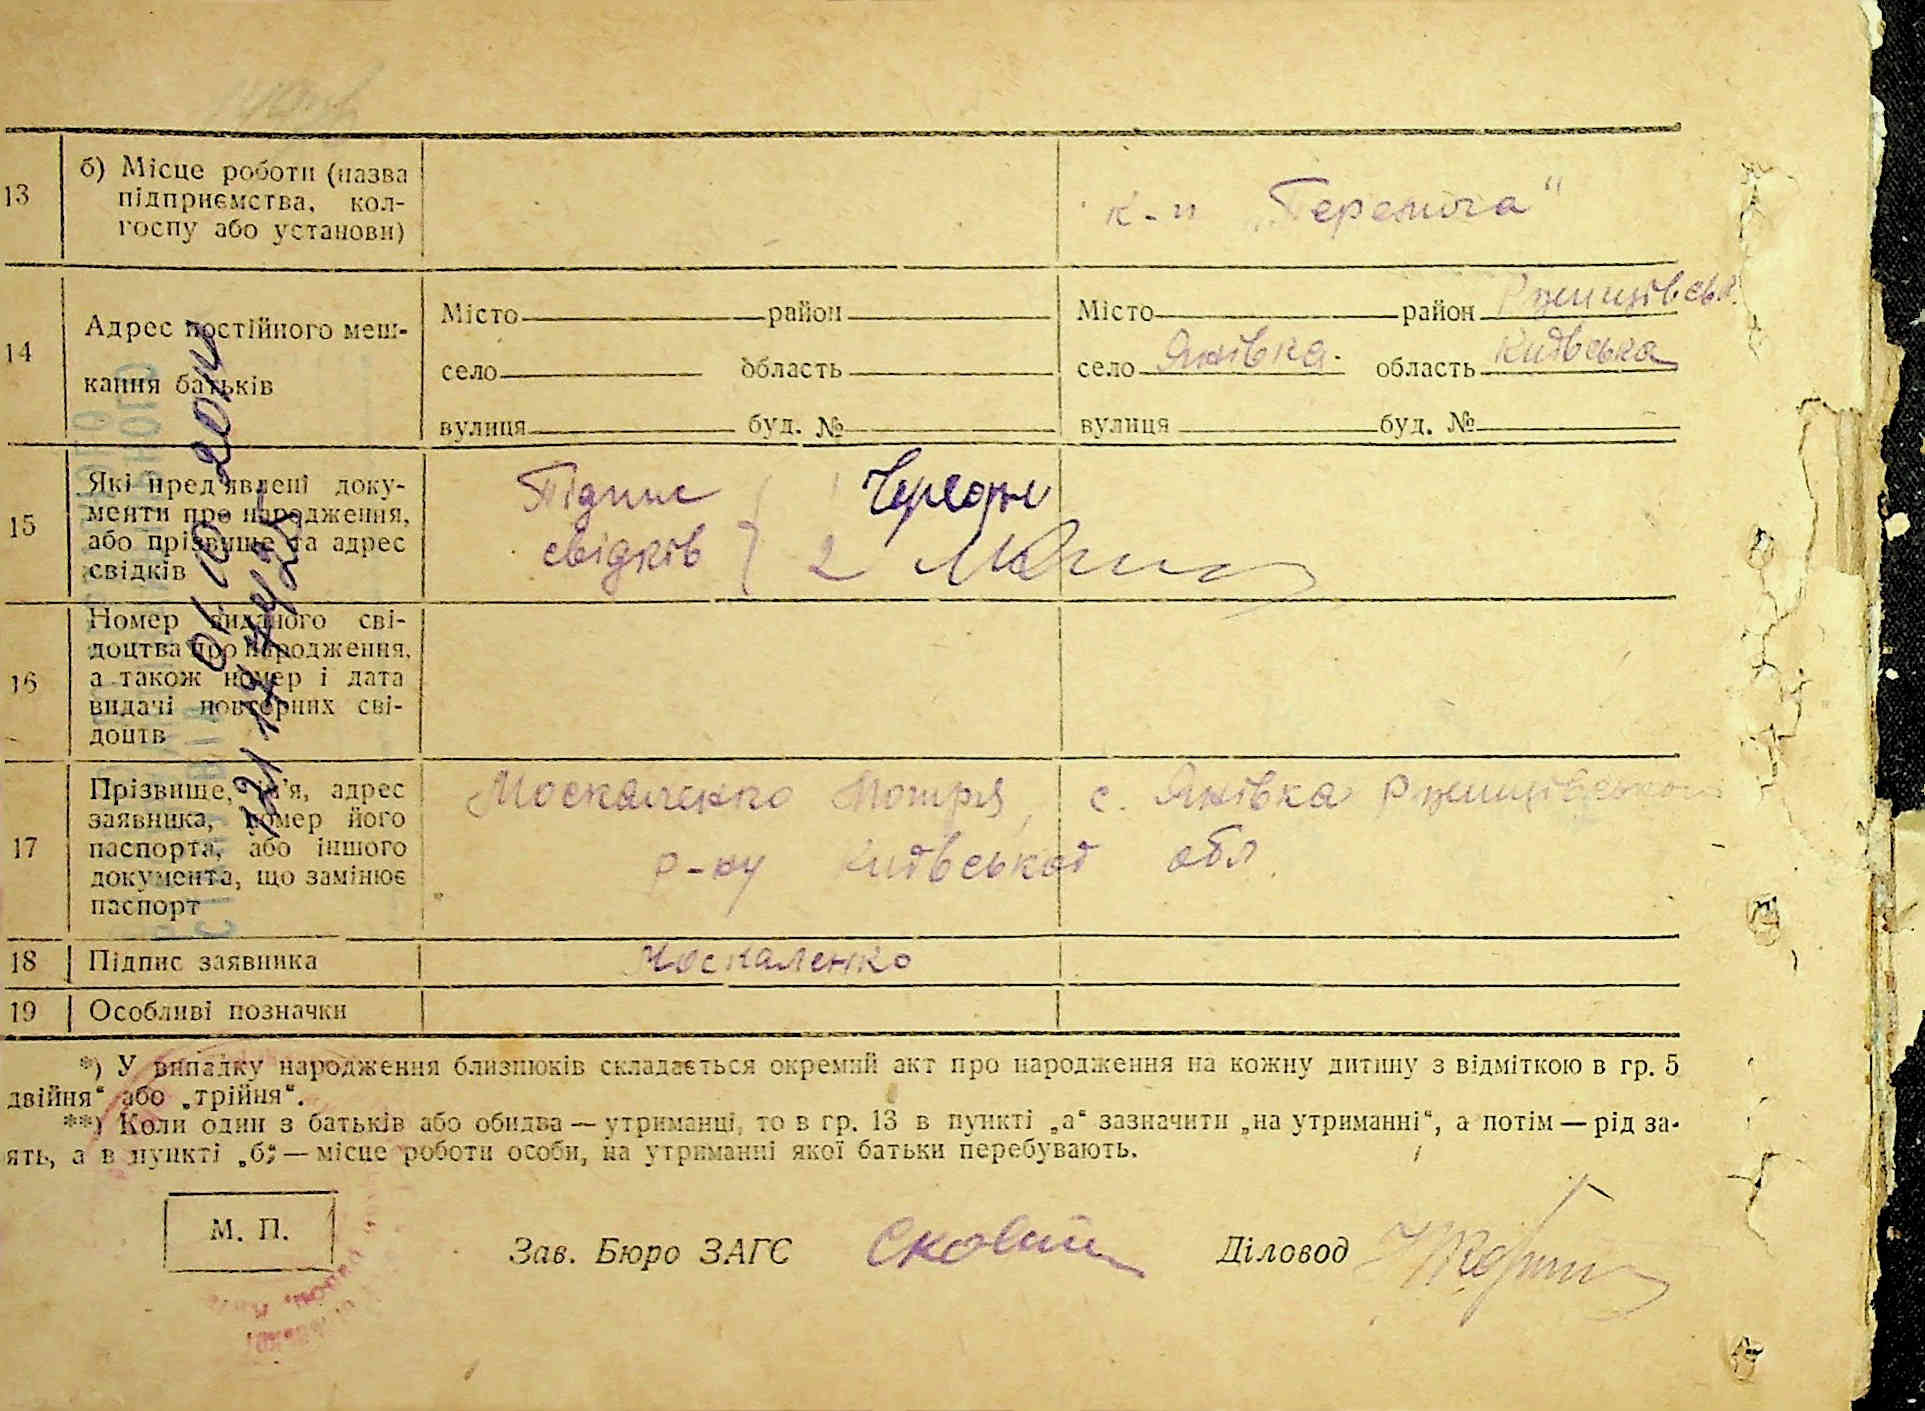 13
б) Місце роботи (назва
підприємства, кол-
госпу або установи)
к-п „Перемога“
14
Адрес постійного меш-
кання батьків
Місто район
село область
вулиця буд. №
Місто район Ржищівськ.
село Янівка область Київська
вулиця буд. №
15
Які пред'явлені доку-
менти про народження,
або прізвище та адрес
свідків
Підпис
свідків
2
16
Номер виданого сві-
доцтва про народження,
а також номер і дата
видачі повторних сві-
доцтв
17
Прізвище, ім'я, адрес
заявника, номер його
паспорта, або іншого
документа, що замінює
паспорт
Москаленко Мотря, с. Янівка Ржищівського
р-ну Київської обл.
18 Підпис заявника
Москаленко
19 Особливі позначки
*) У випадку народження близнюків складається окремий акт про народження на кожну дитину з відміткою в гр. 5
двійня“ або „трійня“.
**) Коли один з батьків або обидва — утриманці, то в гр. 13 в пункті „а“ зазначити „на утриманні“, а потім — рід за-
ять, а в пункті „б“ — місце роботи особи, на утриманні якої батьки перебувають.
М. П.
Зав. Бюро ЗАГС
Діловод